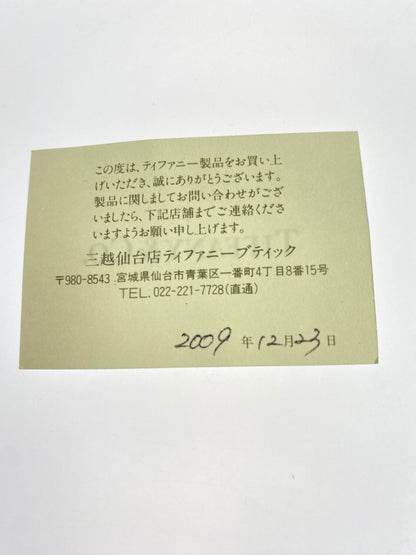 この度は、ティファニー製品をお買い上
げいただき、誠にありがとうございます。
製品に関しましてお問い合わせがござ
いましたら、下記店舗までご連絡くださ
いますようお願い申し上げます。
三越仙台店ティファニーブティック
〒980-8543 宮城県仙台市青葉区一番町4丁目8番15号
TEL. 022-221-7728(直通)
2009 年 12月23日